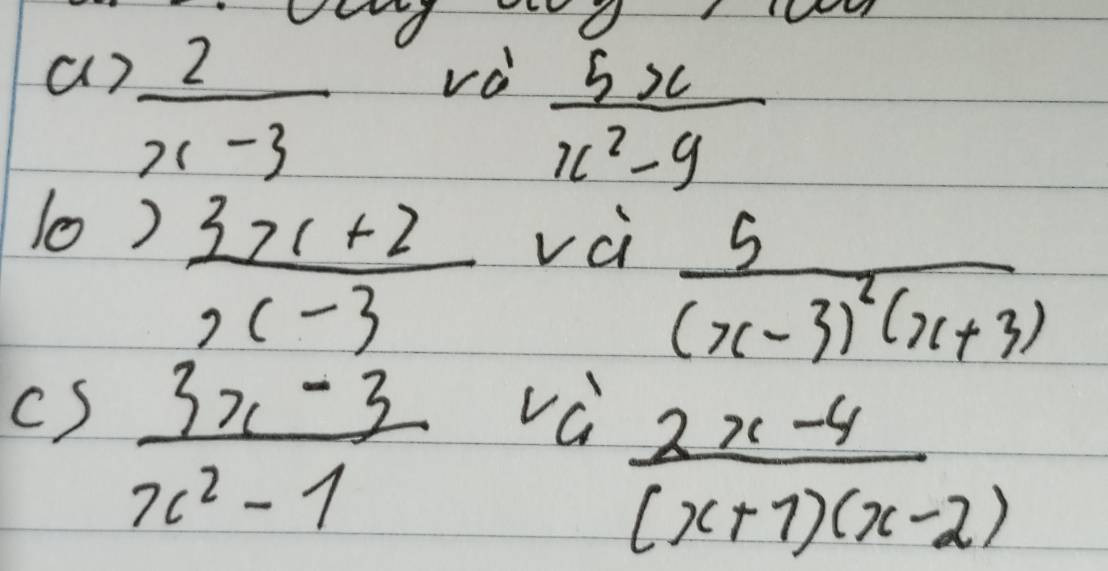 a) 2/(x-3) và 5x/(x²-9)
b) (3x+2)/(x-3) và 5/((x-3)²(x+3))
c) (3x-3)/(x²-1) và (2x-4)/((x+1)(x-2))